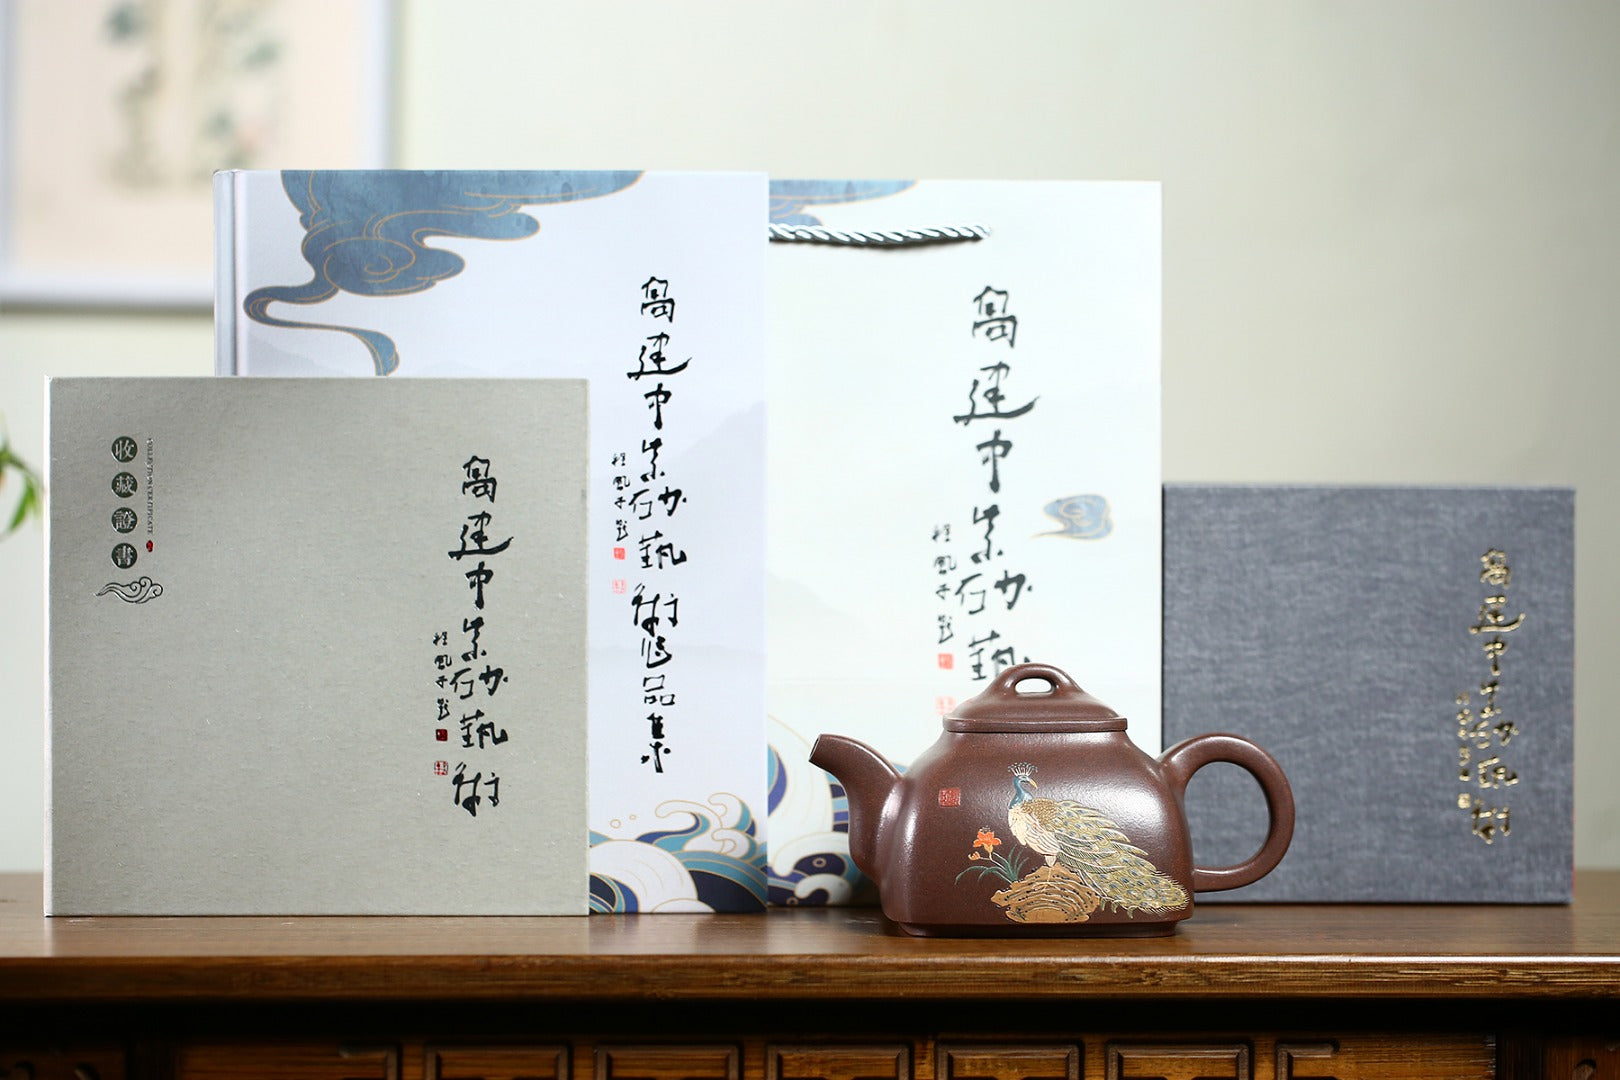 收藏證書
COLLECTION CERTIFICATE
高建中紫砂藝術
程風子題
高建中紫砂藝術作品集
程風子題
高建中紫砂藝
程風子題
高建中紫砂藝術